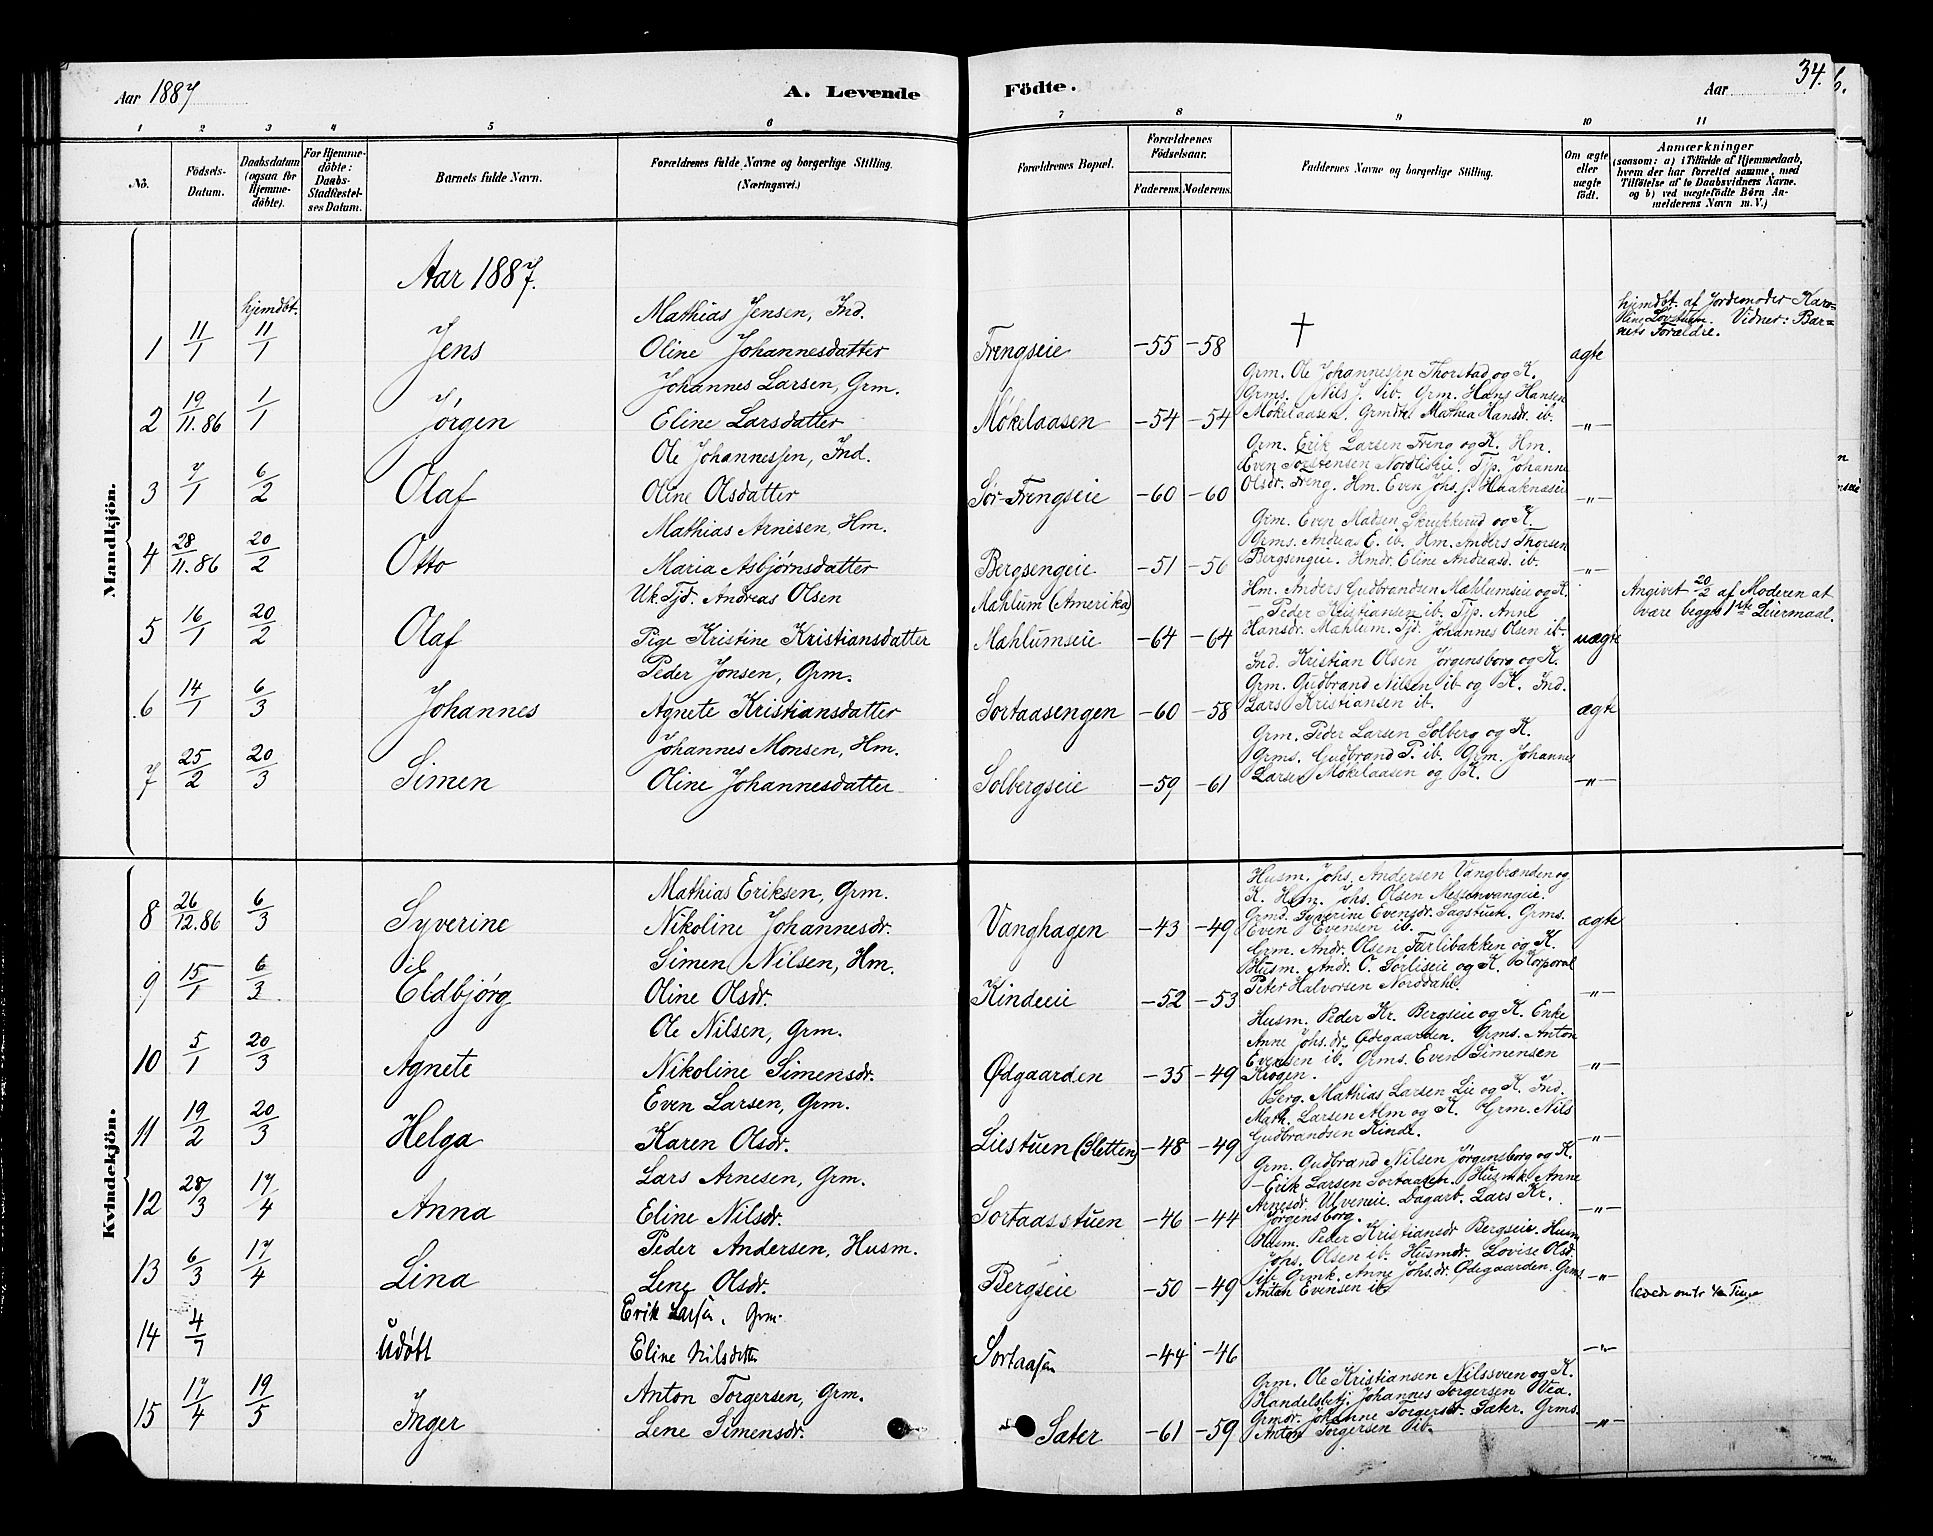 34.
Aar 1887
A. Levende
Födte.
Aar
1 2 3 4 5 6 7 8 9 10 11
No.
Födsels-Datum.
Daabsdatum (ogsaa for Hjemme-döbte).
For Hjemme-döbte: Daabs-Stadfæstel-ses Datum.
Barnets fulde Navn.
Forældrenes fulde Navne og borgerlige Stilling. (Næringsvei.)
Forældrenes Bopæl.
Forældrenes Födselsaar.
Faderens. Moderens.
Faddernes Navne og borgerlige Stilling.
Om ægte eller uægte födt.
Anmærkninger
(saasom: a) i Tilfælde af Hjemmedaab,
hvem der har forrettet samme, med
Tilföielse af to Daabsvidners Navne.
og b) ved uægtefödte Börn An-
melderens Navn m. V.)
Mandkjön.
Aar 1887.
hjemdbt.
Mathias Jensen, Ind.
1 11/1 11/1 Jens Oline Johannesdatter Frengseie -55 -58 † ægte
hjemdbt. af Jordemoder Karo-
line Løvstuen. Vidner: Bar-
nets Forældre.
Johannes Larsen, Grm.
2 19/11.86 1/1 Jørgen Eline Larsdatter Møkelaasen -54 -54 -"-
Grm. Ole Johannessen Thorstad og K.
Grms. Nils J. ib. Grm. Hans Hansen
Møkelaasen. Grmdtr. Mathea Hansdr. ib.
Ole Johannessen, Ind.
3 7/1 6/2 Olaf Oline Olsdatter Sør-Frengseie -60 -60 -"-
Grm. Erik Larsen Freng og K. Hm.
Even Torstensen Nordlieie. Tjp. Johanne
Olsdr. Freng. Hm. Even Johs. s. Haaknæseie
Mathias Arnesen, Hm.
4 28/11.86 20/2 Otto Maria Asbjørnsdatter Bergsengeie -51 -56 -"-
Grm. Even Madsen Skrukkerud og K.
Grms. Andreas E. ib. Hm. Anders Thorsen
Bergsengeie. Hmdr. Eline Andreasd. ib.
Uk. Tjd. Andreas Olsen Mæhlum (Amerika)
5 16/1 20/2 Olaf Pige Kristine Kristiansdatter Mæhlumseie -64 -64 uægte
Hm. Anders Gudbrandsen Mæhlumseie og K.
- Peder Kristiansen ib. Tjp. Anne
Hansdr. Mæhlum. Tjd. Johannes Olsen ib.
Angivet 20/2 af Moderen at
være begges 1ste Leiermaal.
Peder Jonsen, Grm.
6 14/1 6/3 Johannes Agnete Kristiansdatter Sortaasengen -60 -58 ægte
Ind. Kristian Olsen Jørgensborg og K.
Grm. Gudbrand Nilsen ib og K. Ind.
Lars Kristiansen ib.
Johannes Monsen, Hm.
7 25/2 20/3 Simen Oline Johannesdatter Solbergseie -59 -61 -"-
Grm. Peder Larsen Solberg og K.
Grms. Gudbrand P. ib. Grm. Johannes
Larsen Møkelaasen og K.
Kvindekjön.
Mathias Eriksen, Grm.
8 26/12.86 6/3 Syverine Nikoline Johannesdr. Vanghagen -43 -49 ægte
Husm. Johs. Andersen Vangbrænden og
K. Hm. Johs. Olsen Messenvangeie.
Grmd. Syverine Evensdr. Sagstuen. Grms.
Even Evensen ib.
Simen Nilsen, Hm.
9 15/1 6/3 Eldbjörg Oline Olsdr. Kindeeie -52 -53 -"-
Grm. Andr. Olsen Færlibakken og K.
Husm. Andr. O. Sørlieie og K. Korporal
Peter Halvorsen Norddahl.
Ole Nilsen, Grm.
10 5/1 20/3 Agnete Nikoline Simensdr. Ødgaarden -35 -49 -"-
Husm. Peder Kr. Bergseie og K. Enke
Anne Johs.dr. Ødegaarden. Grms. Anton
Evensen ib. Grms. Even Simensen
Krogen.
Even Larsen, Grm.
11 19/2 20/3 Helga Karen Olsdr. Liestuen (Sletten) -48 -49 -"-
Berg. Mathias Larsen Lie og K. Ind.
Math. Larsen Alm og K. Grm. Nils
Gudbrandsen Kinde.
Lars Arnesen, Grm.
12 28/3 17/4 Anna Eline Nilsdr. Sortaasstuen -46 -44 -"-
Grm. Gudbrand Nilsen Jørgensborg og K.
- Erik Larsen Sortaasen. Husmk. Anne
Arnesdr. Ulveneie. Dagarb. Lars Kr.
Jørgensborg.
Peder Andersen, Husm.
13 6/3 17/4 Lina Lene Olsdr. Bergseie -50 -49 -"-
Husm. Peder Kristiansdr Bergseie. Husm
Johs. Olsen ib. Husmdr. Lovise Olsd.
ib. Grmk. Anne Johs.dr. Ødegaarden. Grms.
Anton Evensen ib.
Erik Larsen, Grm.
14 4/7 Udøbt Eline Nilsdatter Sortaasen -44 -46 -"-
Anton Torgersen, Grm.
15 17/4 19/5 Inger Lene Simensdr. Sæter -61 -59 -"-
Grm. Ole Kristiansen Nilssveen og K.
Handelsbetj. Johannes Torgersen Vea.
Grmdr. Johanne Torgersdr. Sæter. Grms.
Anton Torgersen ib.